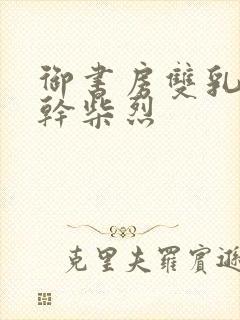 御書房雙乳
幹柴烈
克里夫羅賓遜